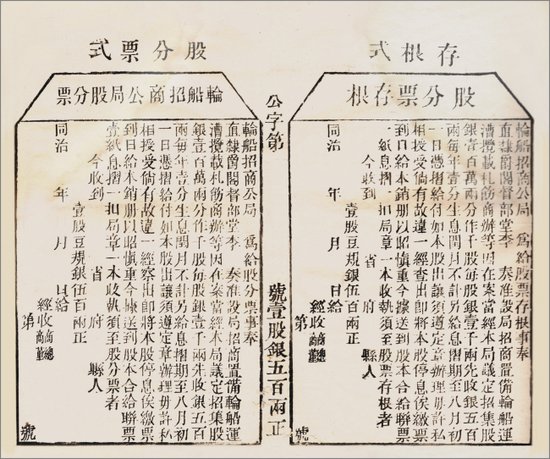 存根式
股分票存根
輪船招商公局 為給股票存根事奉
直隸爵閣督部堂李 奏准設局招商置備輪船運
漕攬載札飭商辦等因在案當經本局議定招集股
銀壹百萬兩分作千股每股銀壹千兩先收銀五百
兩每年壹分生息閏月不計另給息摺期至八月初
一日憑摺給付如本股出讓須遵定章辦理毋許私
相授受倘有故違一經查出即將本股停息俟繳票
到日給本銷冊以昭慎重今據送到股本合給聯票
一紙息摺一扣局章一本收執須至股票存根者
今收到 省 府 縣人
壹股豆規銀伍百兩正
同治 年 月 日給
經收商總
第 號
公字第 號壹股銀五百兩正
股分票式
輪船招商公局股分票
輪船招商公局 為給股分票事奉
直隸爵閣督部堂李 奏准設局招商置備輪船運
漕攬載札飭商辦等因在案當經本局議定招集股
銀壹百萬兩分作千股每股銀壹千兩先收銀五百
兩每年壹分生息閏月不計另給息摺期至八月初
一日憑摺給付如本股出讓須遵定章辦理毋許私
相授受倘有故違一經察出即將本股停息俟繳票
到日給本銷冊以昭慎重今據送到股本合給聯票
壹紙息摺一扣局章一本收執須至股分票者
今收到 省 府 縣人
壹股豆規銀伍百兩正
同治 年 月 日給
經收商總
第 號